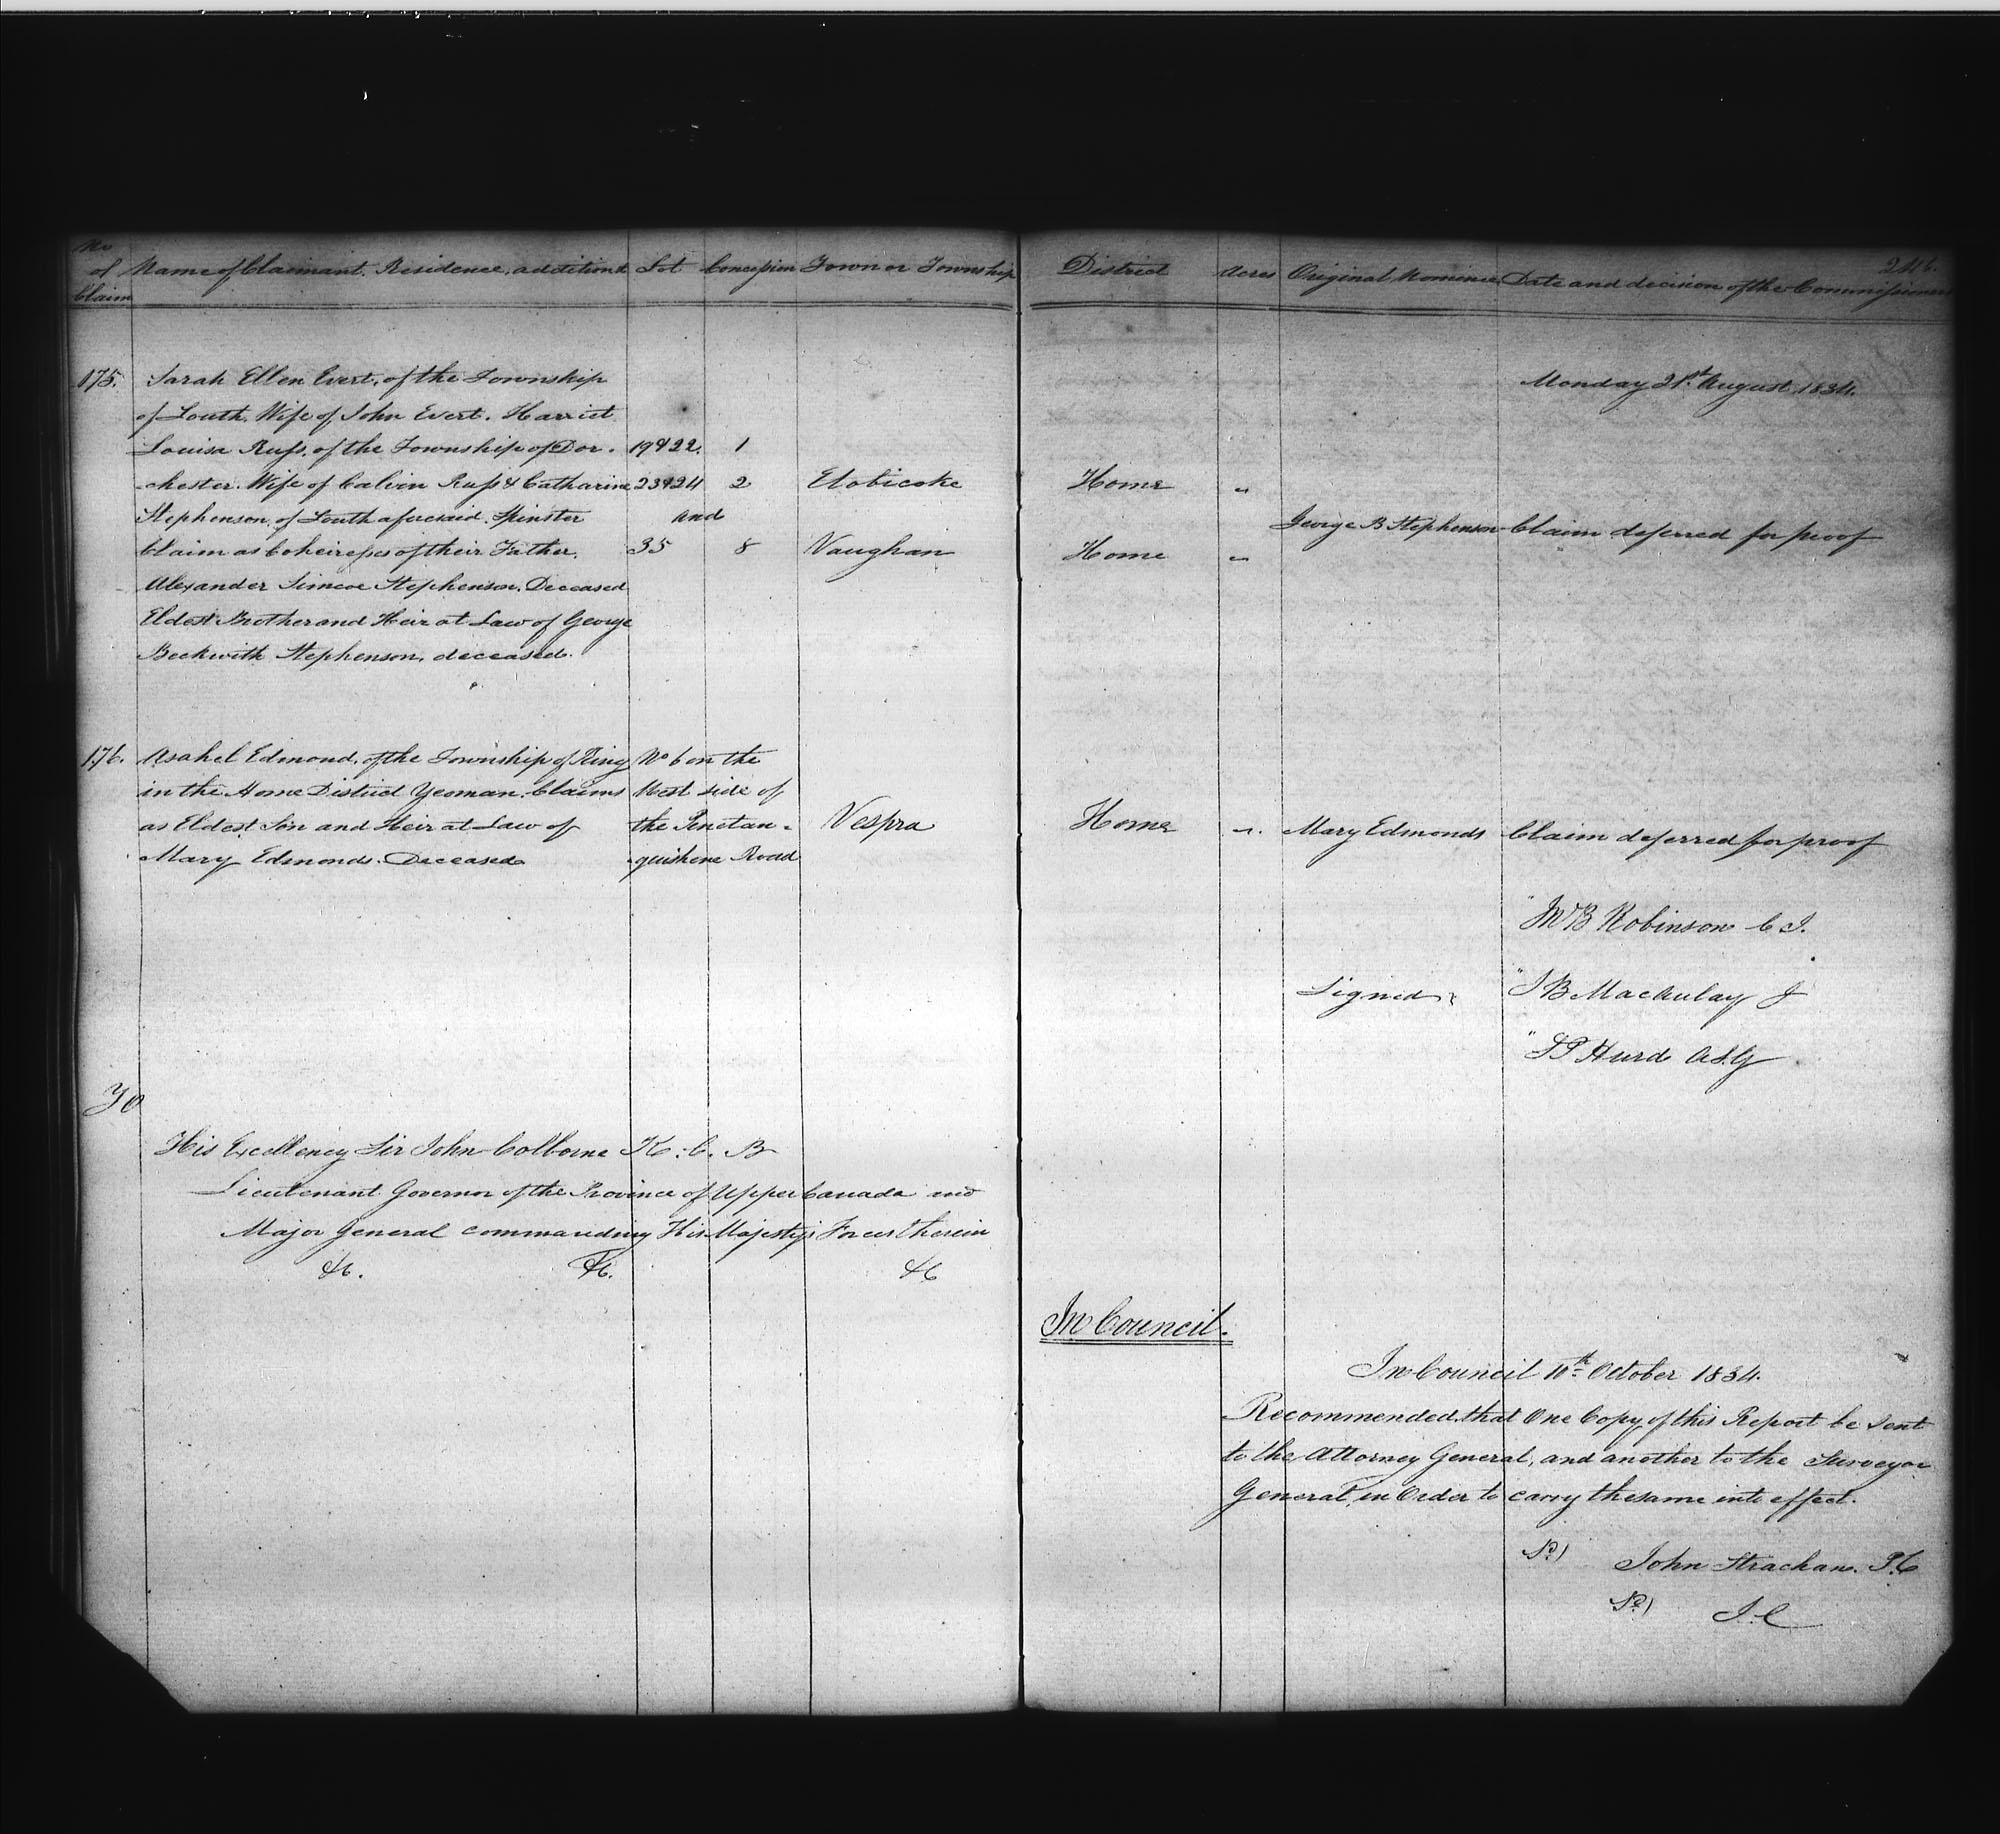 No of Claim | Name of Claimant, Residence, addition & | Lot | Concession | Town or Township | District | Acres | Original Nominee | Date and decision of the Commissioners
246.
175. Sarah Ellen Evert, of the Township
Monday 21st August 1834.
of Louth, Wife of John Evert. Harriet
Louisa Russ, of the Township of Dor- 19 & 22. 1
chester. Wife of Calvin Russ & Catharine 23 & 24 2 Etobicoke Home "
Stephenson, of Louth aforesaid, Spinster and George B Stephenson Claim deferred for proof
Claim as Coheiresses of their Father, 35 8 Vaughan Home "
Alexander Simcoe Stephenson, Deceased
Eldest Brother and Heir at Law of George
Beckwith Stephenson, deceased.
176. Asahel Edmond, of the Township of King No 6 on the
in the Home District Yeoman. Claims West side of
as Eldest Son and Heir at Law of the Penetan- Vespra Home ". Mary Edmonds Claim deferred for proof
Mary Edmonds. Deceased guishene Road
Robinson C J.
Signed J B Macaulay J
" S P Hurd ASG
To
His Excellency Sir John Colborne K. C. B
Lieutenant Governor of the Province of Upper Canada and
Major General commanding His Majestys Forces therein
&c. &c. &c
In Council.
In Council 10th October 1834.
Recommended that One Copy of this Report be Sent
to the Attorney General, and another to the Surveyor
General, in Order to carry the same into effect.
Sd) John Strachan. P.C
Sd) J. C